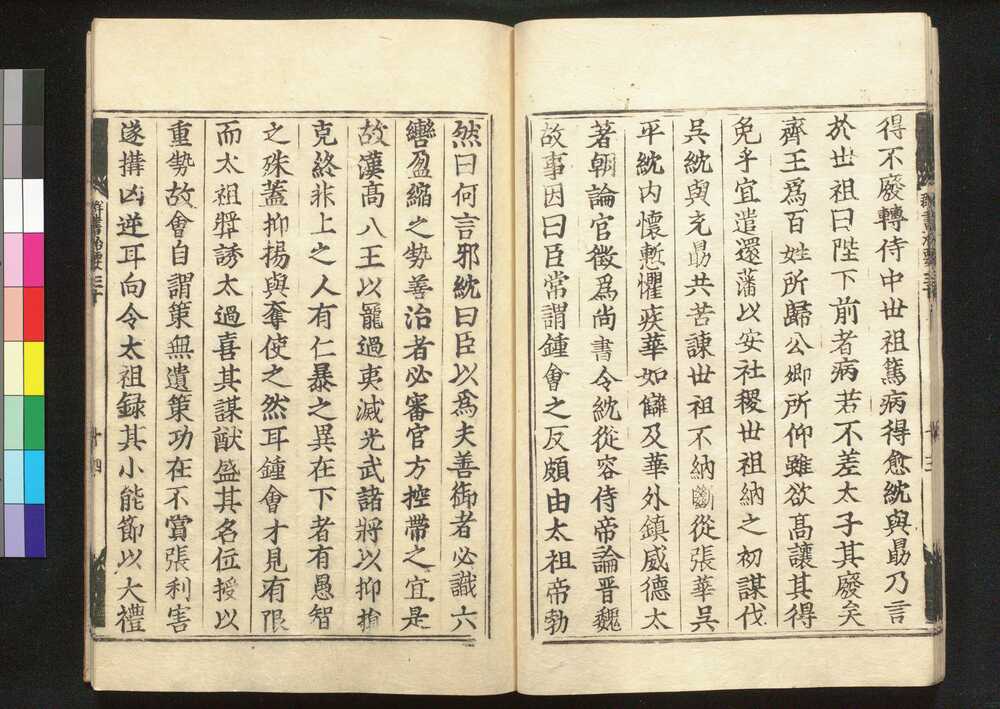 得不廢轉侍中世祖篤病得愈紞與勗乃言
於世祖曰陛下前者病若不差太子其廢矣
齊王爲百姓所歸公卿所仰雖欲髙讓其得
免乎宜遣還藩以安社稷世祖納之初謀伐
吳紞與充勗共苦諫世祖不納斷從張華吳
平紞内懷慙懼疾華如讎及華外鎮威德太
著朝論官徵爲尚書令紞從容侍帝論晋魏
故事因曰臣常謂鍾會之反頗由太祖帝勃
然曰何言邪紞曰臣以爲夫善御者必識六
轡盈縮之勢善治者必審官方控帶之宜是
故漢髙八王以寵過夷滅光武諸將以抑損
克終非上之人有仁暴之異在下者有愚智
之殊蓋抑揚與奪使之然耳鍾會才見有限
而太祖獎誘太過喜其謀猷盛其名位授以
重勢故會自謂策無遺策功在不賞張利害
遂搆凶逆耳向令太祖録其小能節以大禮
群書治要三十
十三
群書治要三十
十四